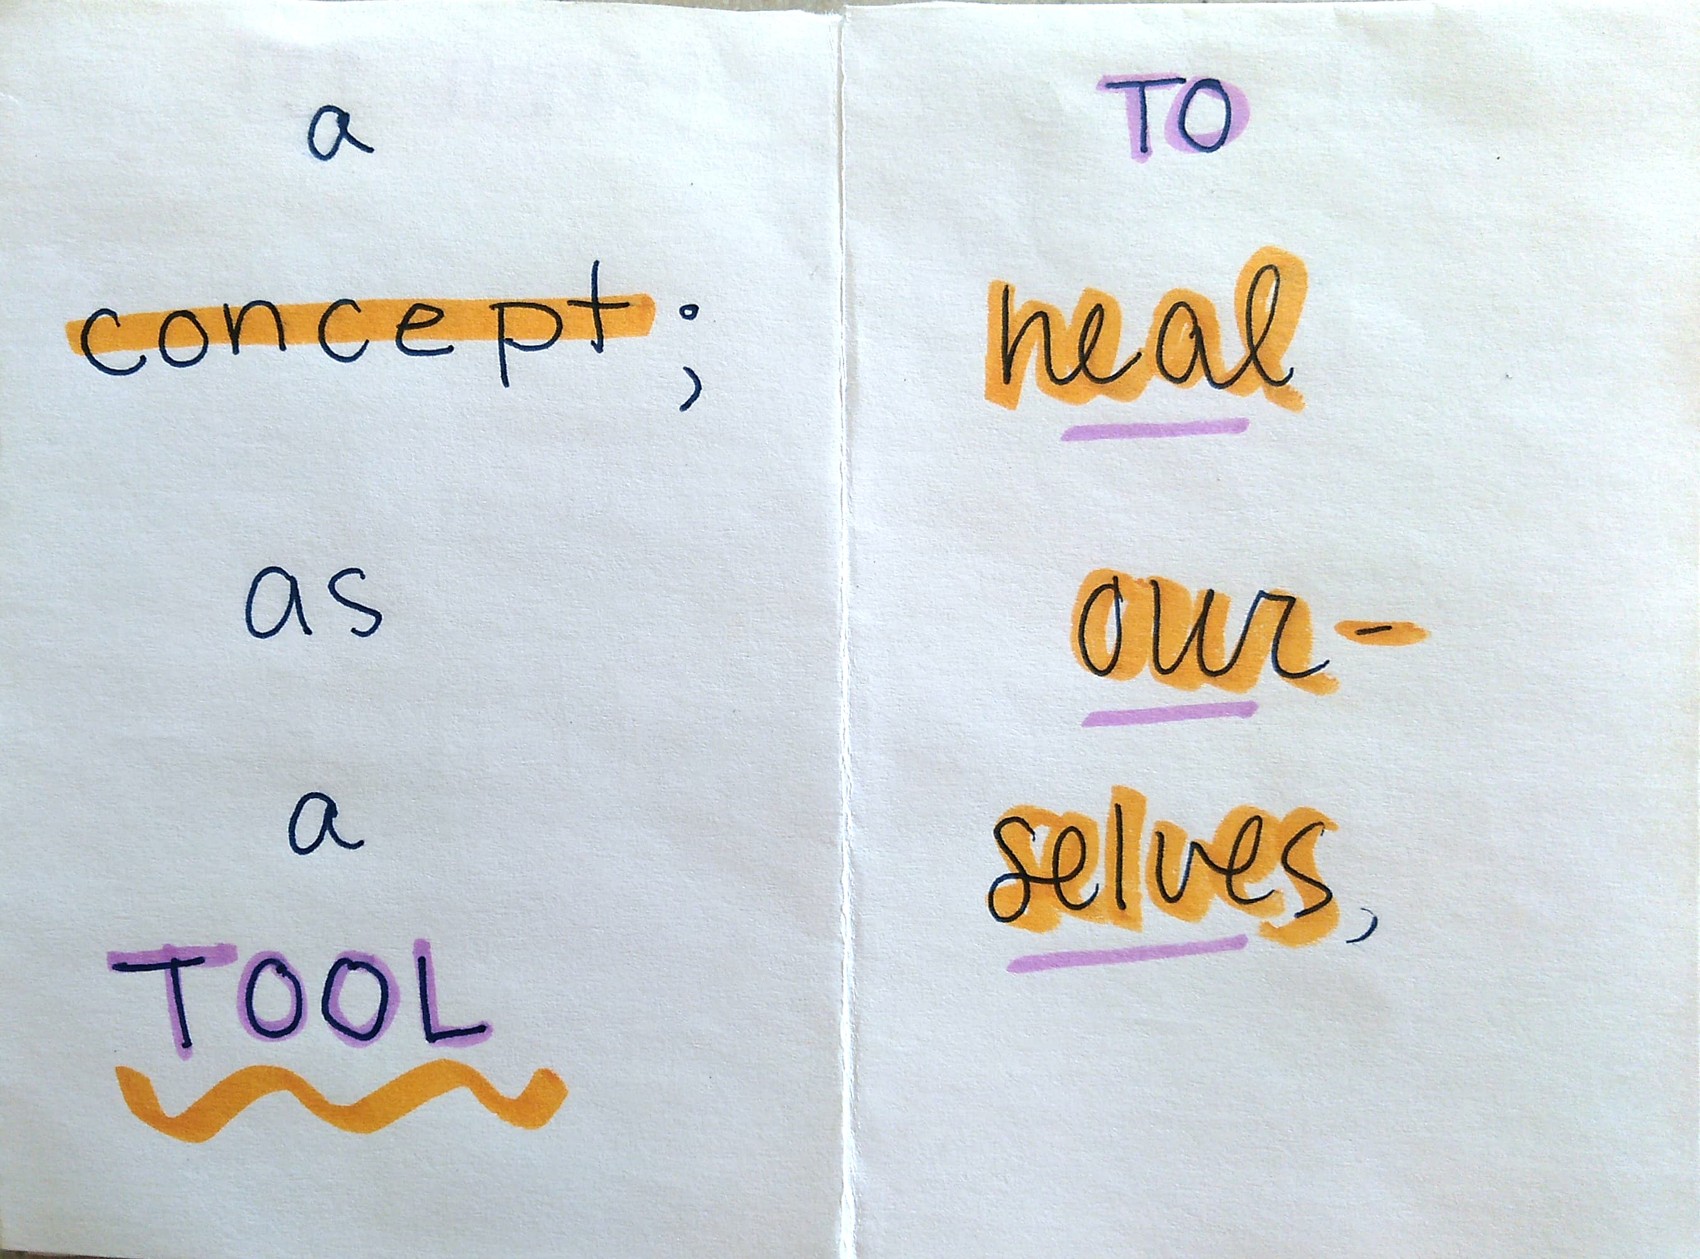 a
concept;
as
a
TOOL
TO
heal
our-
selves,